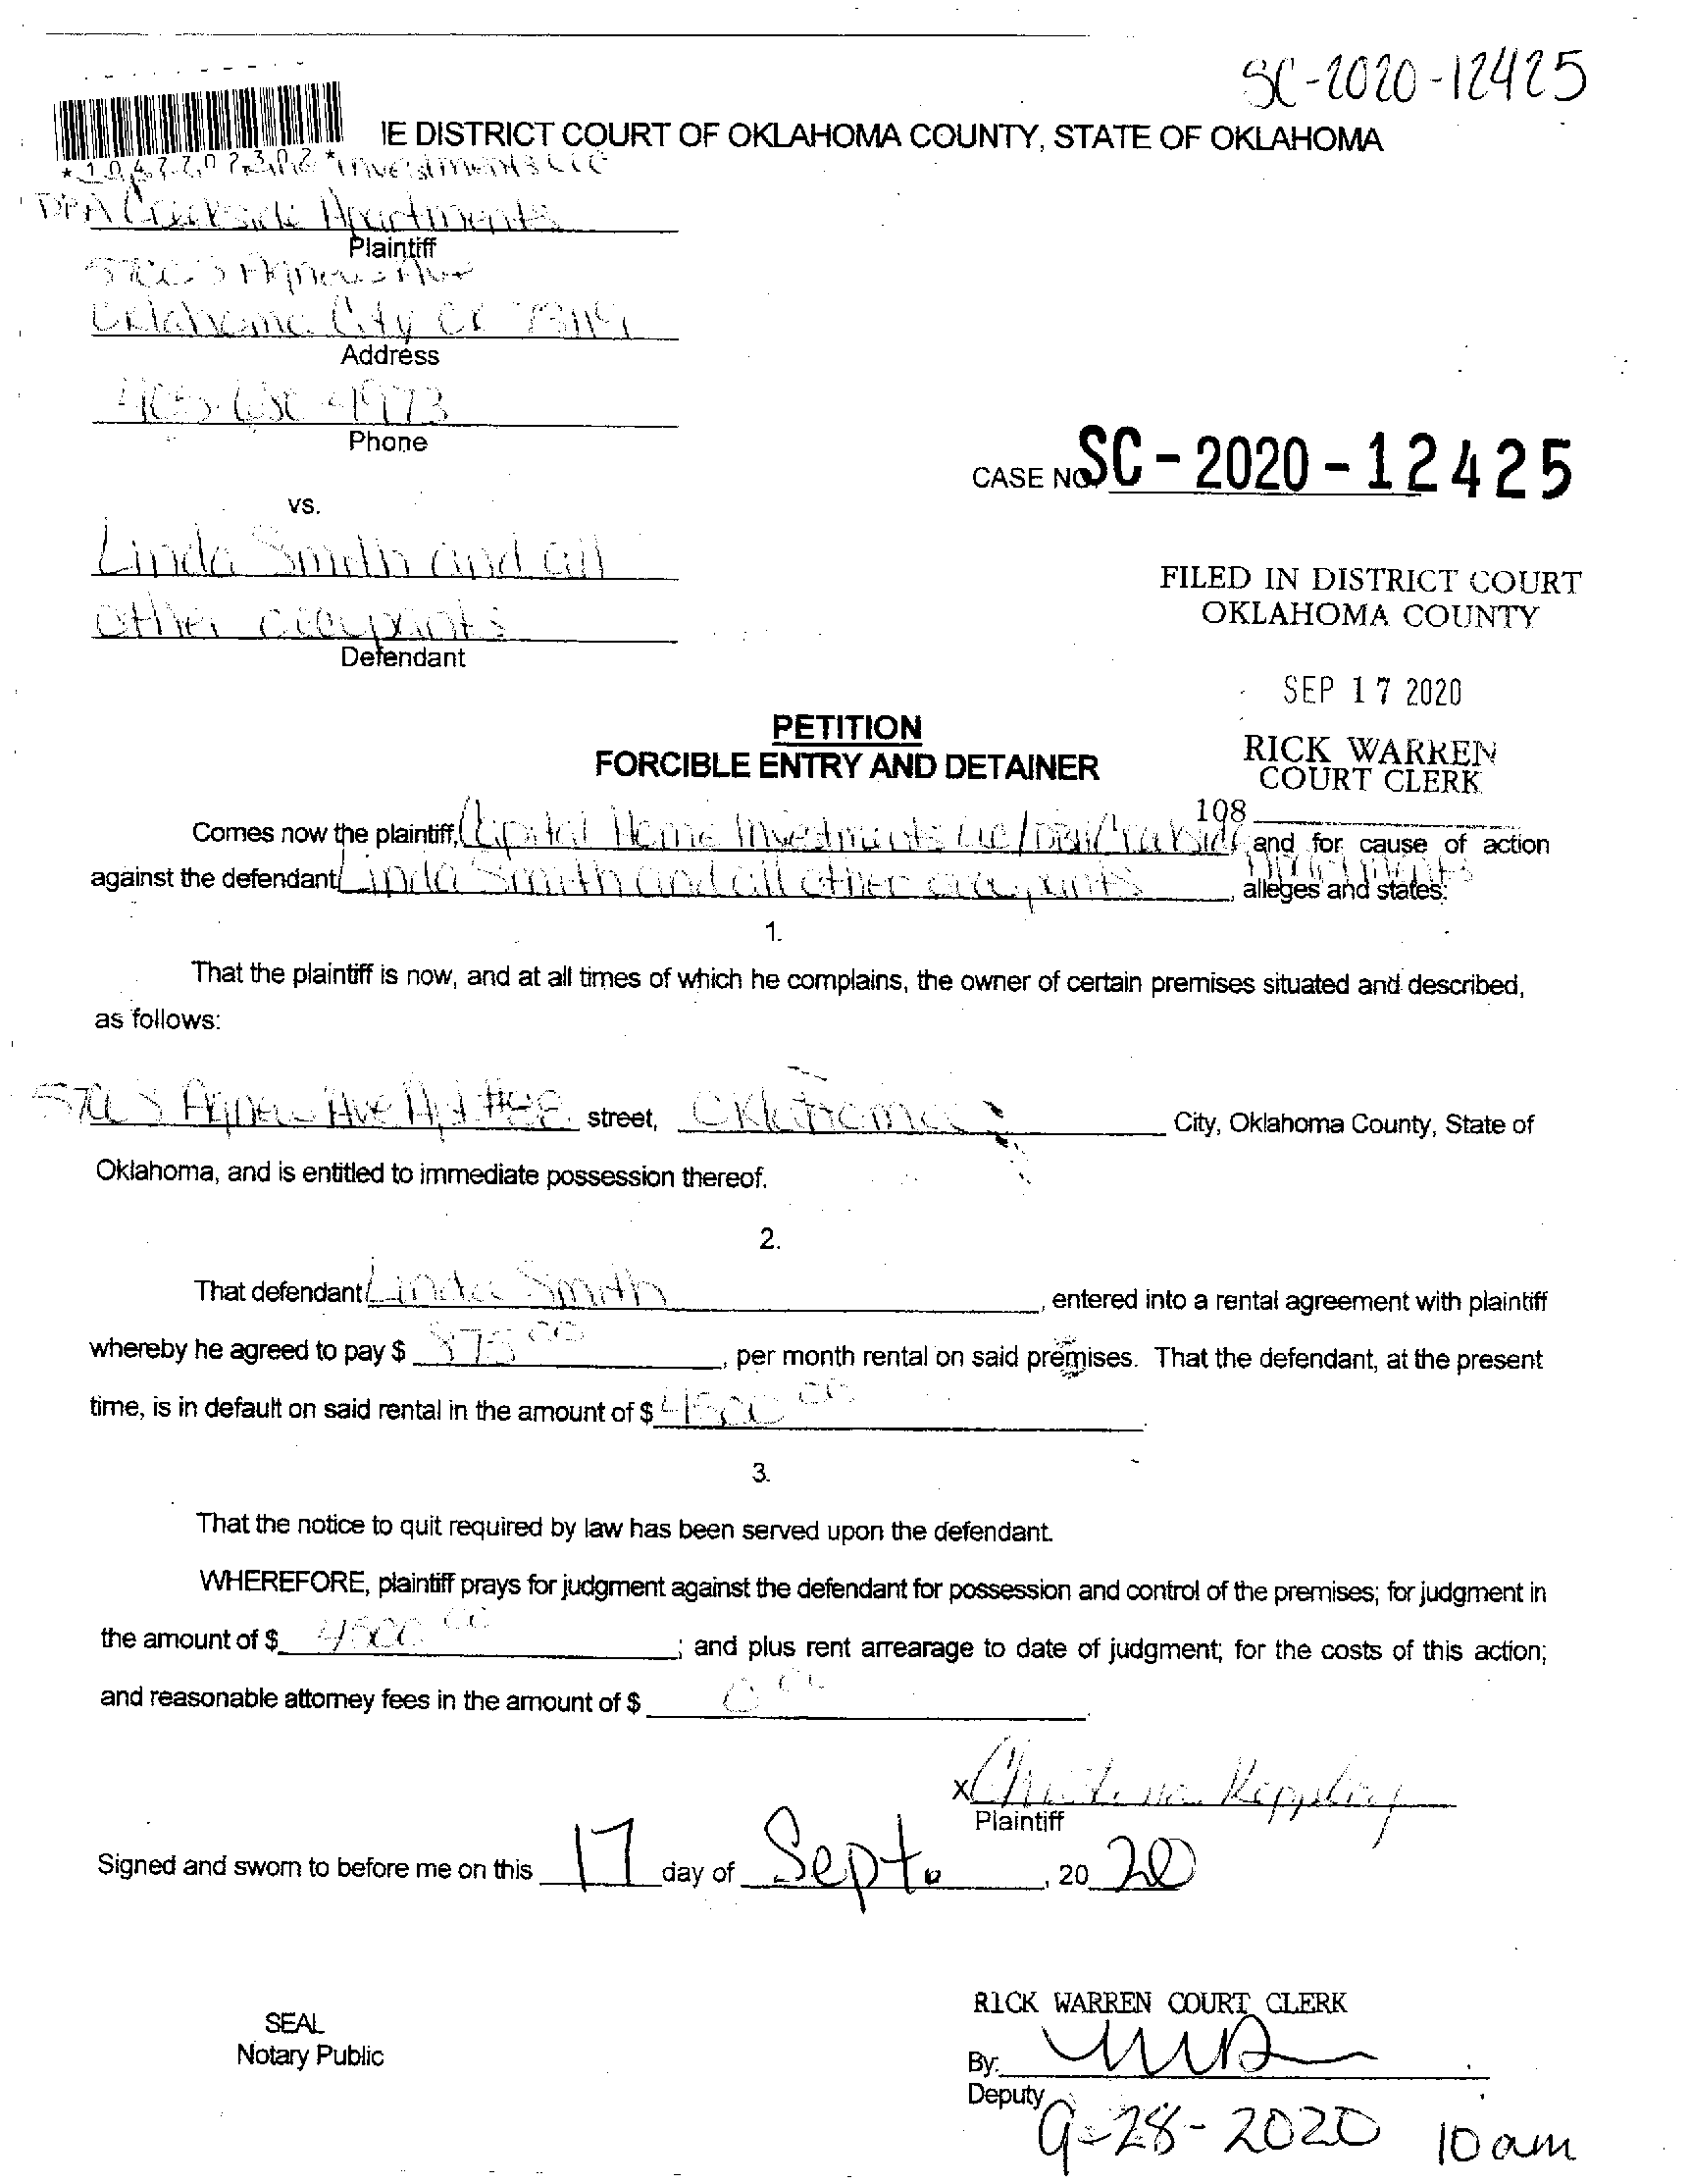 SC-2020-12425
IE DISTRICT COURT OF OKLAHOMA COUNTY, STATE OF OKLAHOMA
*1047702302* Investments LLC
DBA Creekside Apartments
Plaintiff
S Agnew Ave
Oklahoma City OK 73119
Address
405 4973
Phone
CASE NO. SC-2020-12425
vs.
Linda Smith and all
other occupants
Defendant
FILED IN DISTRICT COURT
OKLAHOMA COUNTY
SEP 17 2020
RICK WARREN
COURT CLERK
108
PETITION
FORCIBLE ENTRY AND DETAINER
Comes now the plaintiff, Capital Home Investments LLC/DBA Creekside Apartments and for cause of action
against the defendant Linda Smith and all other occupants, alleges and states:
1.
That the plaintiff is now, and at all times of which he complains, the owner of certain premises situated and described,
as follows:
S Agnew Ave Apt street, Oklahoma City, Oklahoma County, State of
Oklahoma, and is entitled to immediate possession thereof.
2.
That defendant Linda Smith, entered into a rental agreement with plaintiff
whereby he agreed to pay $ 875 00, per month rental on said premises. That the defendant, at the present
time, is in default on said rental in the amount of $ 4500 00
3.
That the notice to quit required by law has been served upon the defendant.
WHEREFORE, plaintiff prays for judgment against the defendant for possession and control of the premises; for judgment in
the amount of $ 4500 00; and plus rent arrearage to date of judgment; for the costs of this action;
and reasonable attorney fees in the amount of $ 0 00
x Christina
Plaintiff
Signed and sworn to before me on this 17 day of Sept., 20 20
SEAL
Notary Public
RICK WARREN COURT CLERK
By:
Deputy
9-28-2020 10am